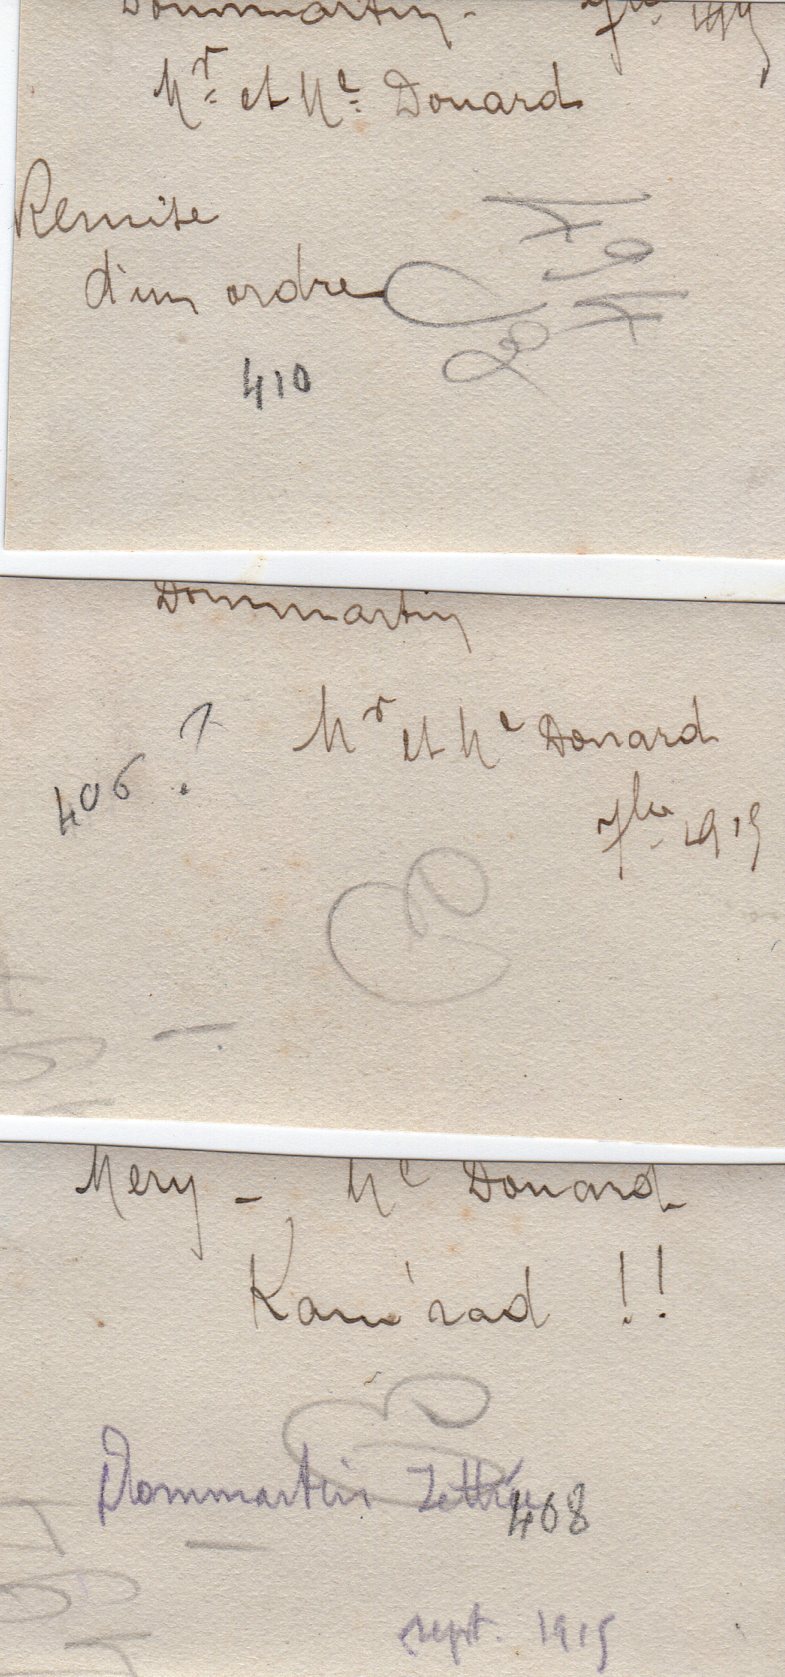 Dommartin - 7bre 1915
Mr et Me Douard
Remise
d'un ordre
410
Dommartin
Mr et Me Douard
406 ?
7bre 1915
Mery - Me Douard
Kamérad !!
Dommartin Lettrée
408
sept. 1915